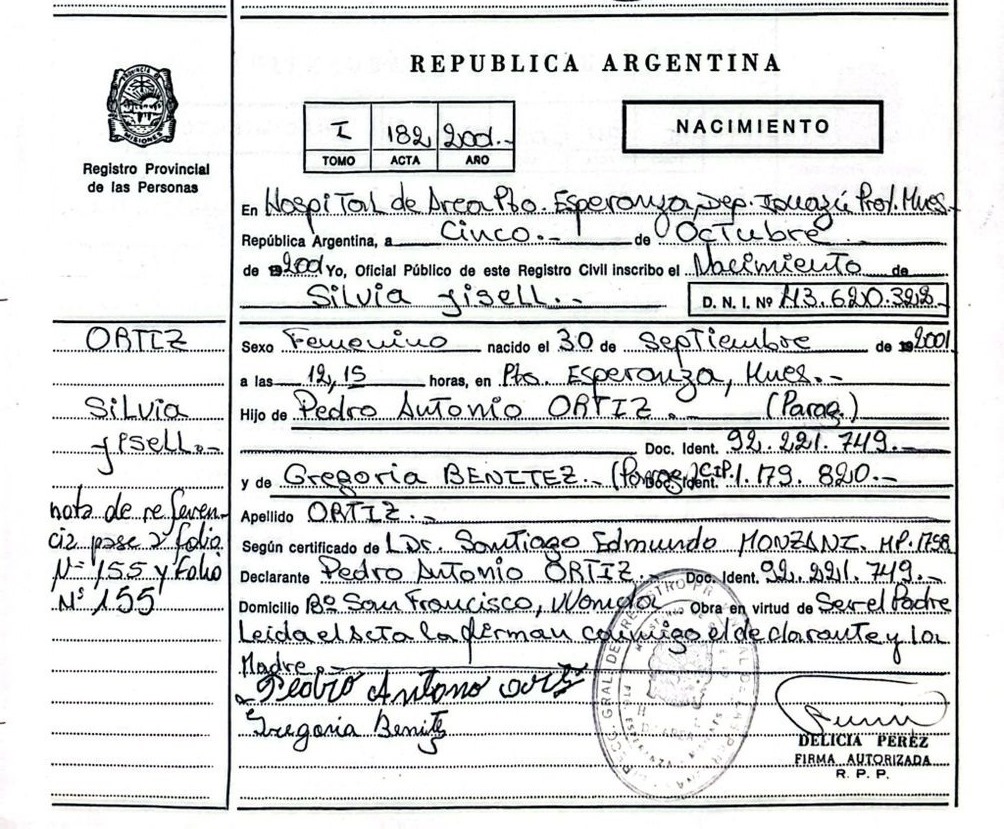 REPUBLICA ARGENTINA
PROVINCIA
MISIONES
Registro Provincial
de las Personas
I 182 2001.-
TOMO ACTA AÑO
NACIMIENTO
En Hospital de Area Pto. Esperanza, Dep. Iguazú Prof. Mnes.-
República Argentina, a Cinco.- de Octubre
de 2001 Yo, Oficial Público de este Registro Civil inscribo el Nacimiento de
Silvia Yisell.- D. N. I. Nº 43.620.322-
ORTIZ
Silvia
Yisell.-
nota de referen-
cia pase a folio
Nº 155 y folio
Nº 155
Sexo Femenino nacido el 30 de Septiembre de 2001
a las 12,15 horas, en Pto. Esperanza, Mnes.-
Hijo de Pedro Antonio ORTIZ.- (Parag.)
Doc. Ident. 92.221.749.-
y de Gregoria BENITEZ.- (Parag.) C.I.P. 1.179.820.-
Apellido ORTIZ.-
Según certificado de L Dr. Santiago Edmundo MONZANI. MP. 1758
Declarante Pedro Antonio ORTIZ.- Doc. Ident. 92.221.749.-
Domicilio Bº San Francisco, Wanda Obra en virtud de Ser el Padre
Leida el Acta la firman conmigo el declarante y la
Madre.-
Pedro Antono ortiz
Gregoria Benitez
DELICIA PEREZ
FIRMA AUTORIZADA
R. P. P.